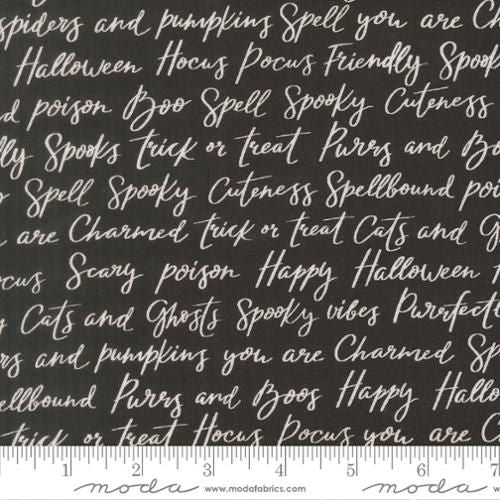 spiders and pumpkins Spell you are Ch
Halloween Hocus Pocus Friendly Spook
d poison Boo Spell Spooky Cuteness
dly Spooks trick or treat Purrs and Bo
Spell Spooky Cuteness Spellbound poi
are Charmed trick or treat Cats and G
ocus Scary poison Happy Halloween
y Cats and Ghosts Spooky vibes Purrfectl
rs and pumpkins you are Charmed Sp
ellbound Purrs and Boos Happy Hallo
trick or treat Hocus Pocus you are C
1 2 3 4 5 6 7
moda www.modafabrics.com moda www.modafabrics.com moda